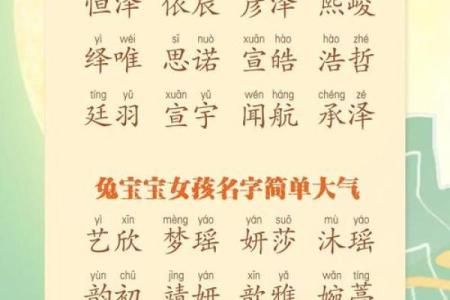 恒泽 依辰 彦泽 熙峻
yì wéi sī nuò xuān hào hào zhé
绎唯 思诺 宣皓 浩哲
tíng yǔ xuān yǔ wén háng chéng zé
廷羽 宣宇 闻航 承泽
兔宝宝女孩名字简单大气
yì xīn mèng yáo yán suō mù yáo
艺欣 梦瑶 妍莎 沐瑶
yùn chū jìng yán xīn yǎ wǎn tíng
韵初 靖妍 歆雅 婉葶